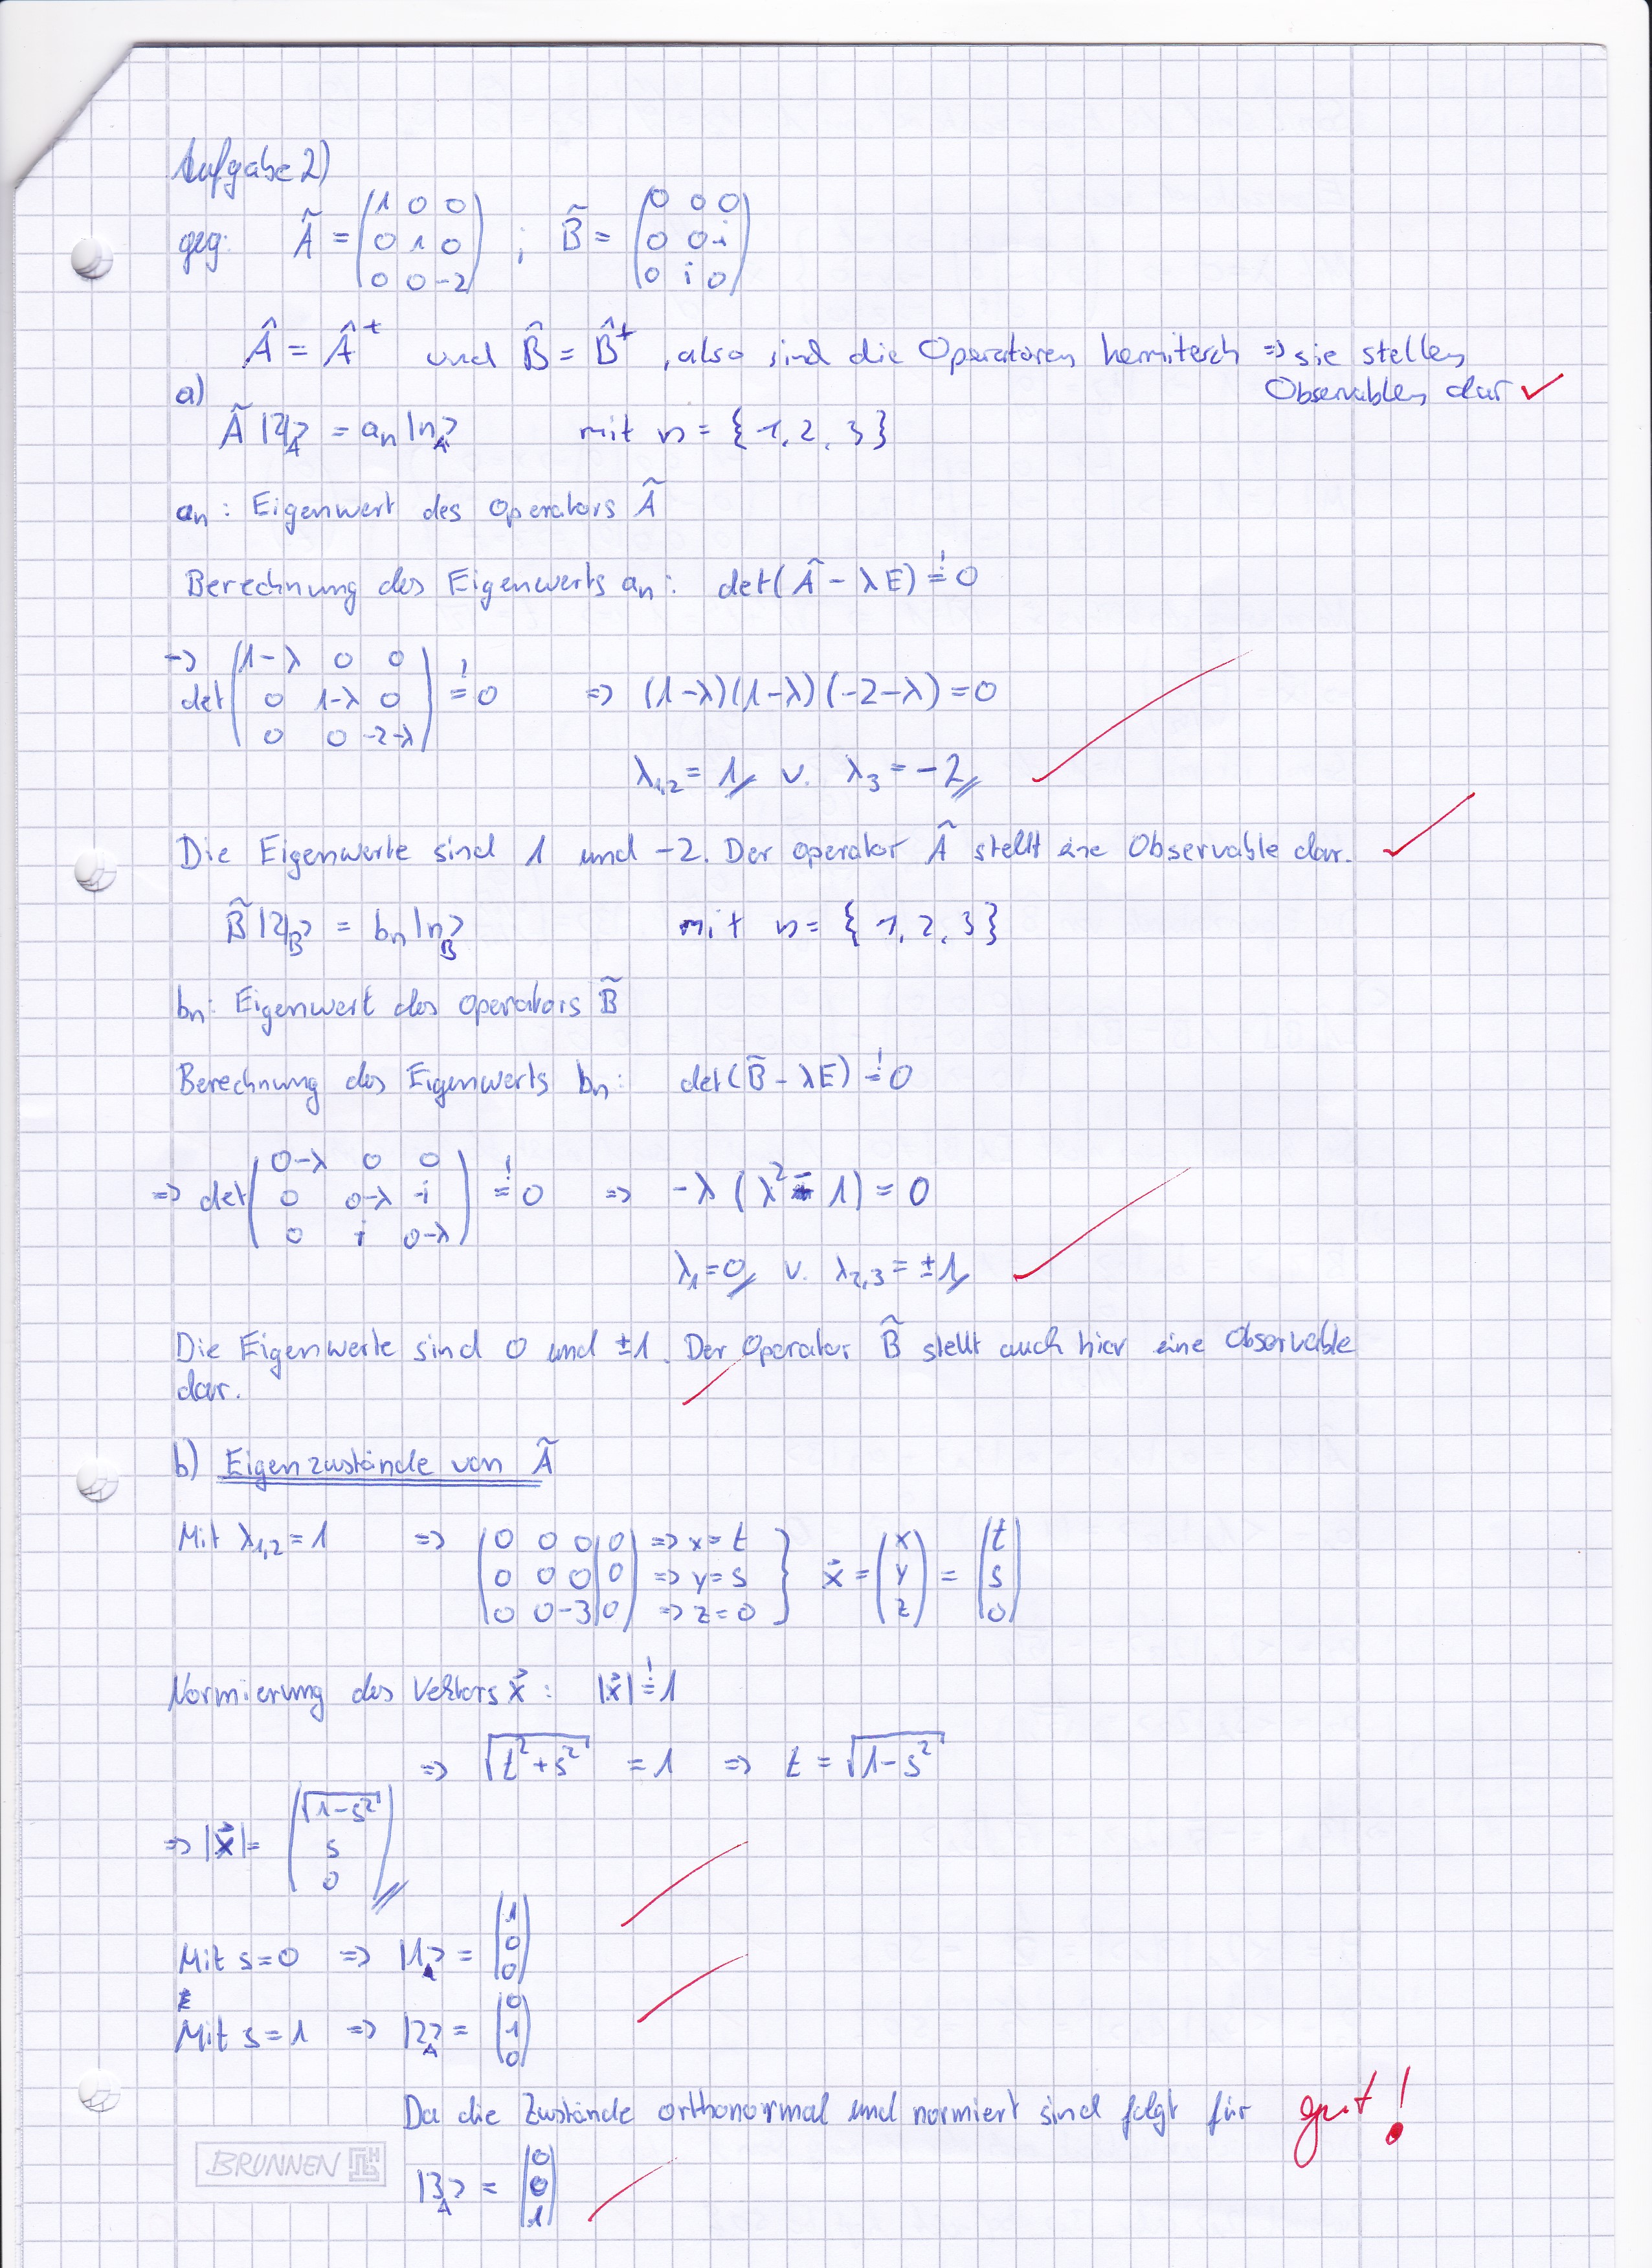 Aufgabe 2)
geg: Ã = (1 0 0; 0 1 0; 0 0 -2) ; B̃ = (0 0 0; 0 0 -i; 0 i 0)
Â = Â⁺ und B̂ = B̂⁺, also sind die Operatoren hermitesch => sie stellen
Observablen dar ✓
a)
Ã |n_A> = a_n |n_A> mit n = {1, 2, 3}
a_n: Eigenwert des Operators Ã
Berechnung des Eigenwerts a_n: det(Â - λE) =! 0
-> det(1-λ 0 0; 0 1-λ 0; 0 0 -2-λ) =! 0 => (1-λ)(1-λ)(-2-λ) = 0
λ_1,2 = 1 v. λ_3 = -2
Die Eigenwerte sind 1 und -2. Der Operator Ã stellt eine Observable dar.
B̃ |n_B> = b_n |n_B> mit n = {1, 2, 3}
b_n: Eigenwert des Operators B̃
Berechnung des Eigenwerts b_n: det(B̃ - λE) =! 0
=> det(0-λ 0 0; 0 0-λ -i; 0 i 0-λ) =! 0 => -λ(λ² - 1) = 0
λ_1 = 0 v. λ_2,3 = ±1
Die Eigenwerte sind 0 und ±1. Der Operator B̃ stellt auch hier eine Observable
dar.
b) Eigenzustände von Ã
Mit λ_1,2 = 1 => (0 0 0 | 0; 0 0 0 | 0; 0 0 -3 | 0) => x = t => y = s => z = 0 } x⃗ = (x; y; z) = (t; s; 0)
Normierung des Vektors x⃗: |x⃗| =! 1
=> √(t² + s²) = 1 => t = √(1 - s²)
=> |x⃗| = (√(1-s²); s; 0)
Mit s = 0 => |1_A> = (1; 0; 0)
Mit s = 1 => |2_A> = (0; 1; 0)
Da die Zustände orthonormal und normiert sind folgt für gut!
|3_A> = (0; 0; 1)
BRUNNEN